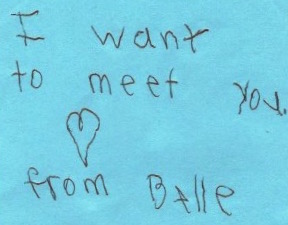 I want
to meet you.
from